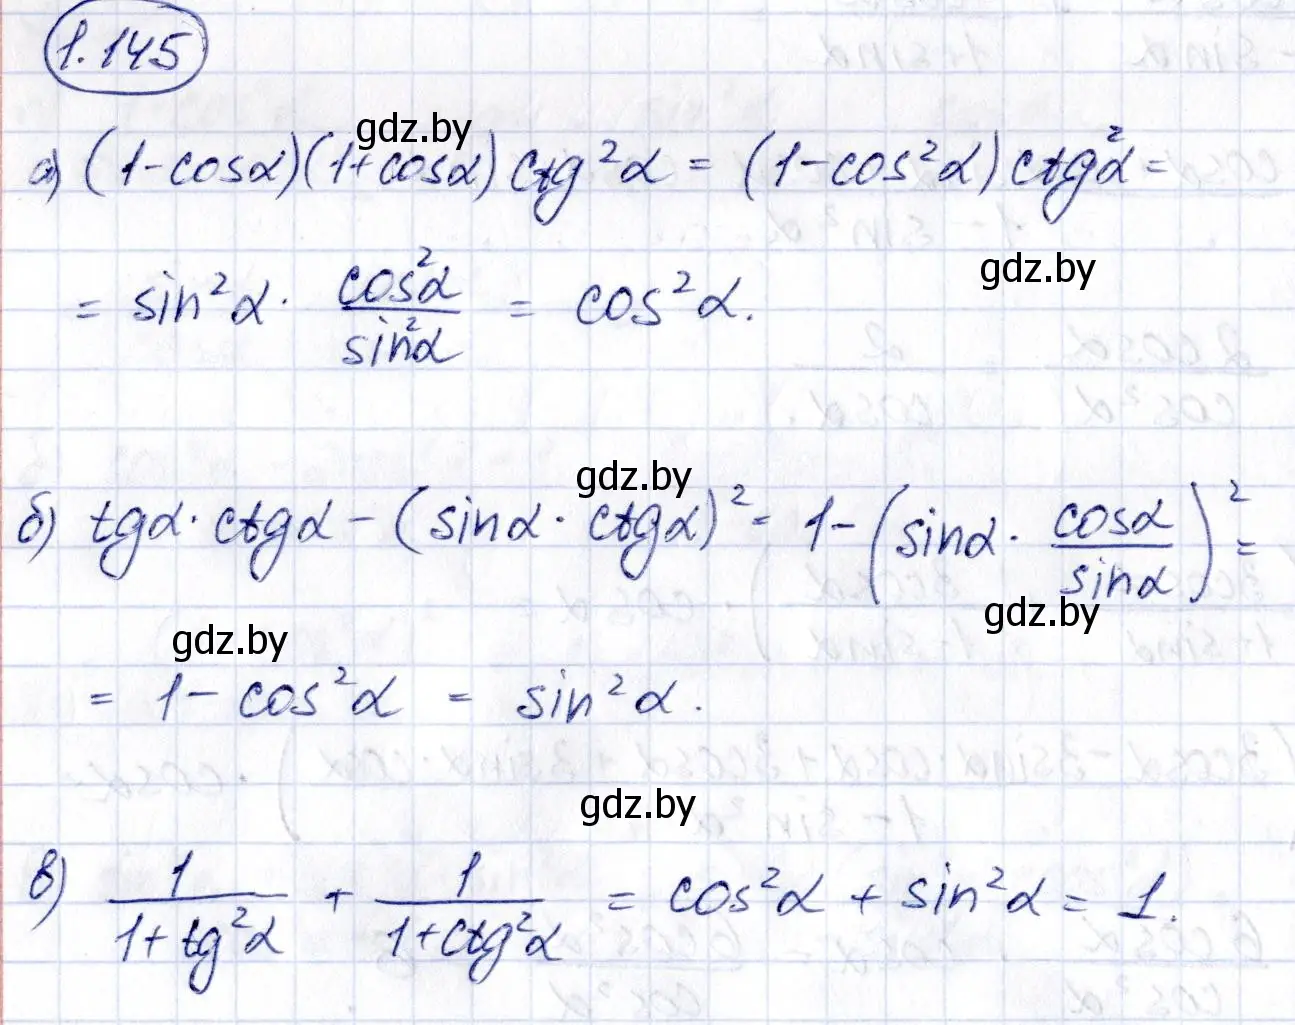 1.145
gdz.by
а) (1-cosα)(1+cosα) ctg²α = (1-cos²α) ctg²α =
gdz.by
= sin²α · cos²α/sin²α = cos²α.
gdz.by
б) tgα · ctgα - (sinα · ctgα)² = 1 - (sinα · cosα/sinα)² =
gdz.by
gdz.by
= 1 - cos²α = sin²α.
gdz.by
в) 1/(1+tg²α) + 1/(1+ctg²α) = cos²α + sin²α = 1.